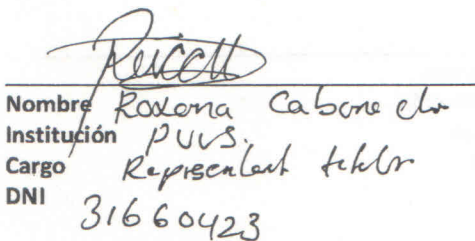 Nombre Roxana Cabone
Institución PUVS.
Cargo Representant titular
DNI
31660423